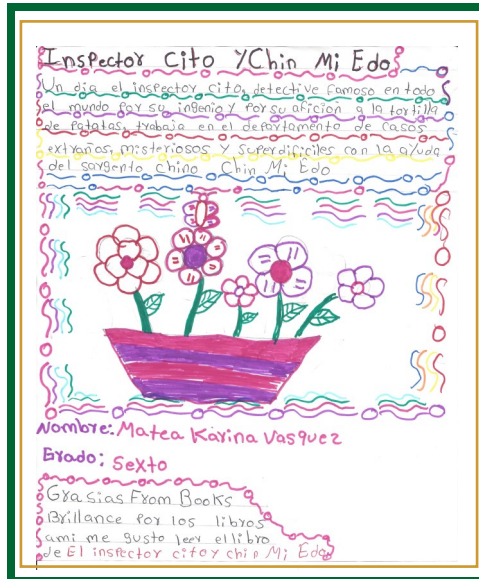 Inspector Cito Y Chin Mi Edo
Un dia el inspector cito, detective famoso en todo
el mundo por su ingenio y por su aficion a la tortilla
de patatas, trabaja en el departamento de casos
extraños, misteriosos y superdificiles con la ayuda
del sargento chino Chin Mi Edo
Nombre: Matea Karina Vasquez
Grado: Sexto
Grasias From Books
Brillance por los libros
ami me gusto leer el libro
de El inspector cito y chin Mi Edo